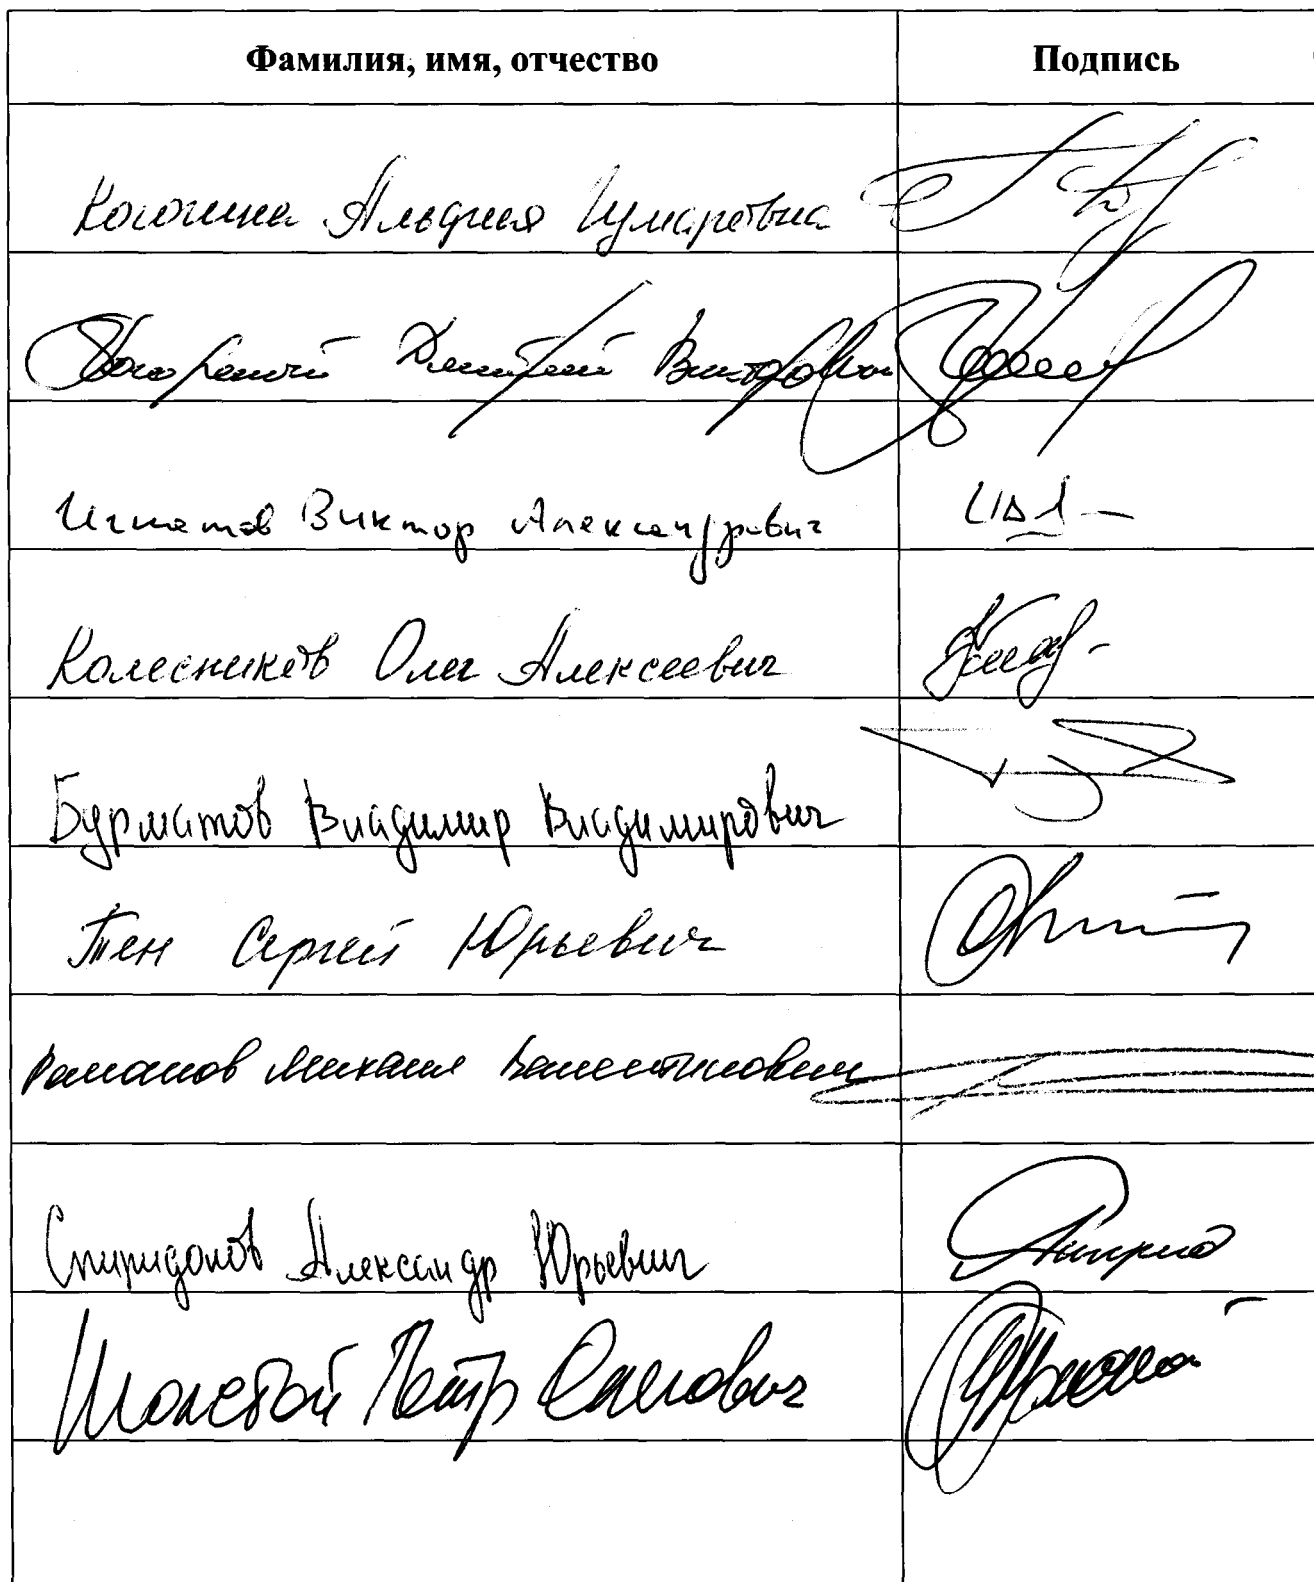 Фамилия, имя, отчество Подпись
Когогина Альфия Гумаровна
Дмитрий Викторович
Игнатов Виктор Александрович
Колесников Олег Алексеевич
Бурматов Владимир Владимирович
Тен Сергей Юрьевич
Романов Михаил Валентинович
Спиридонов Александр Юрьевич
Толстой Петр Олегович